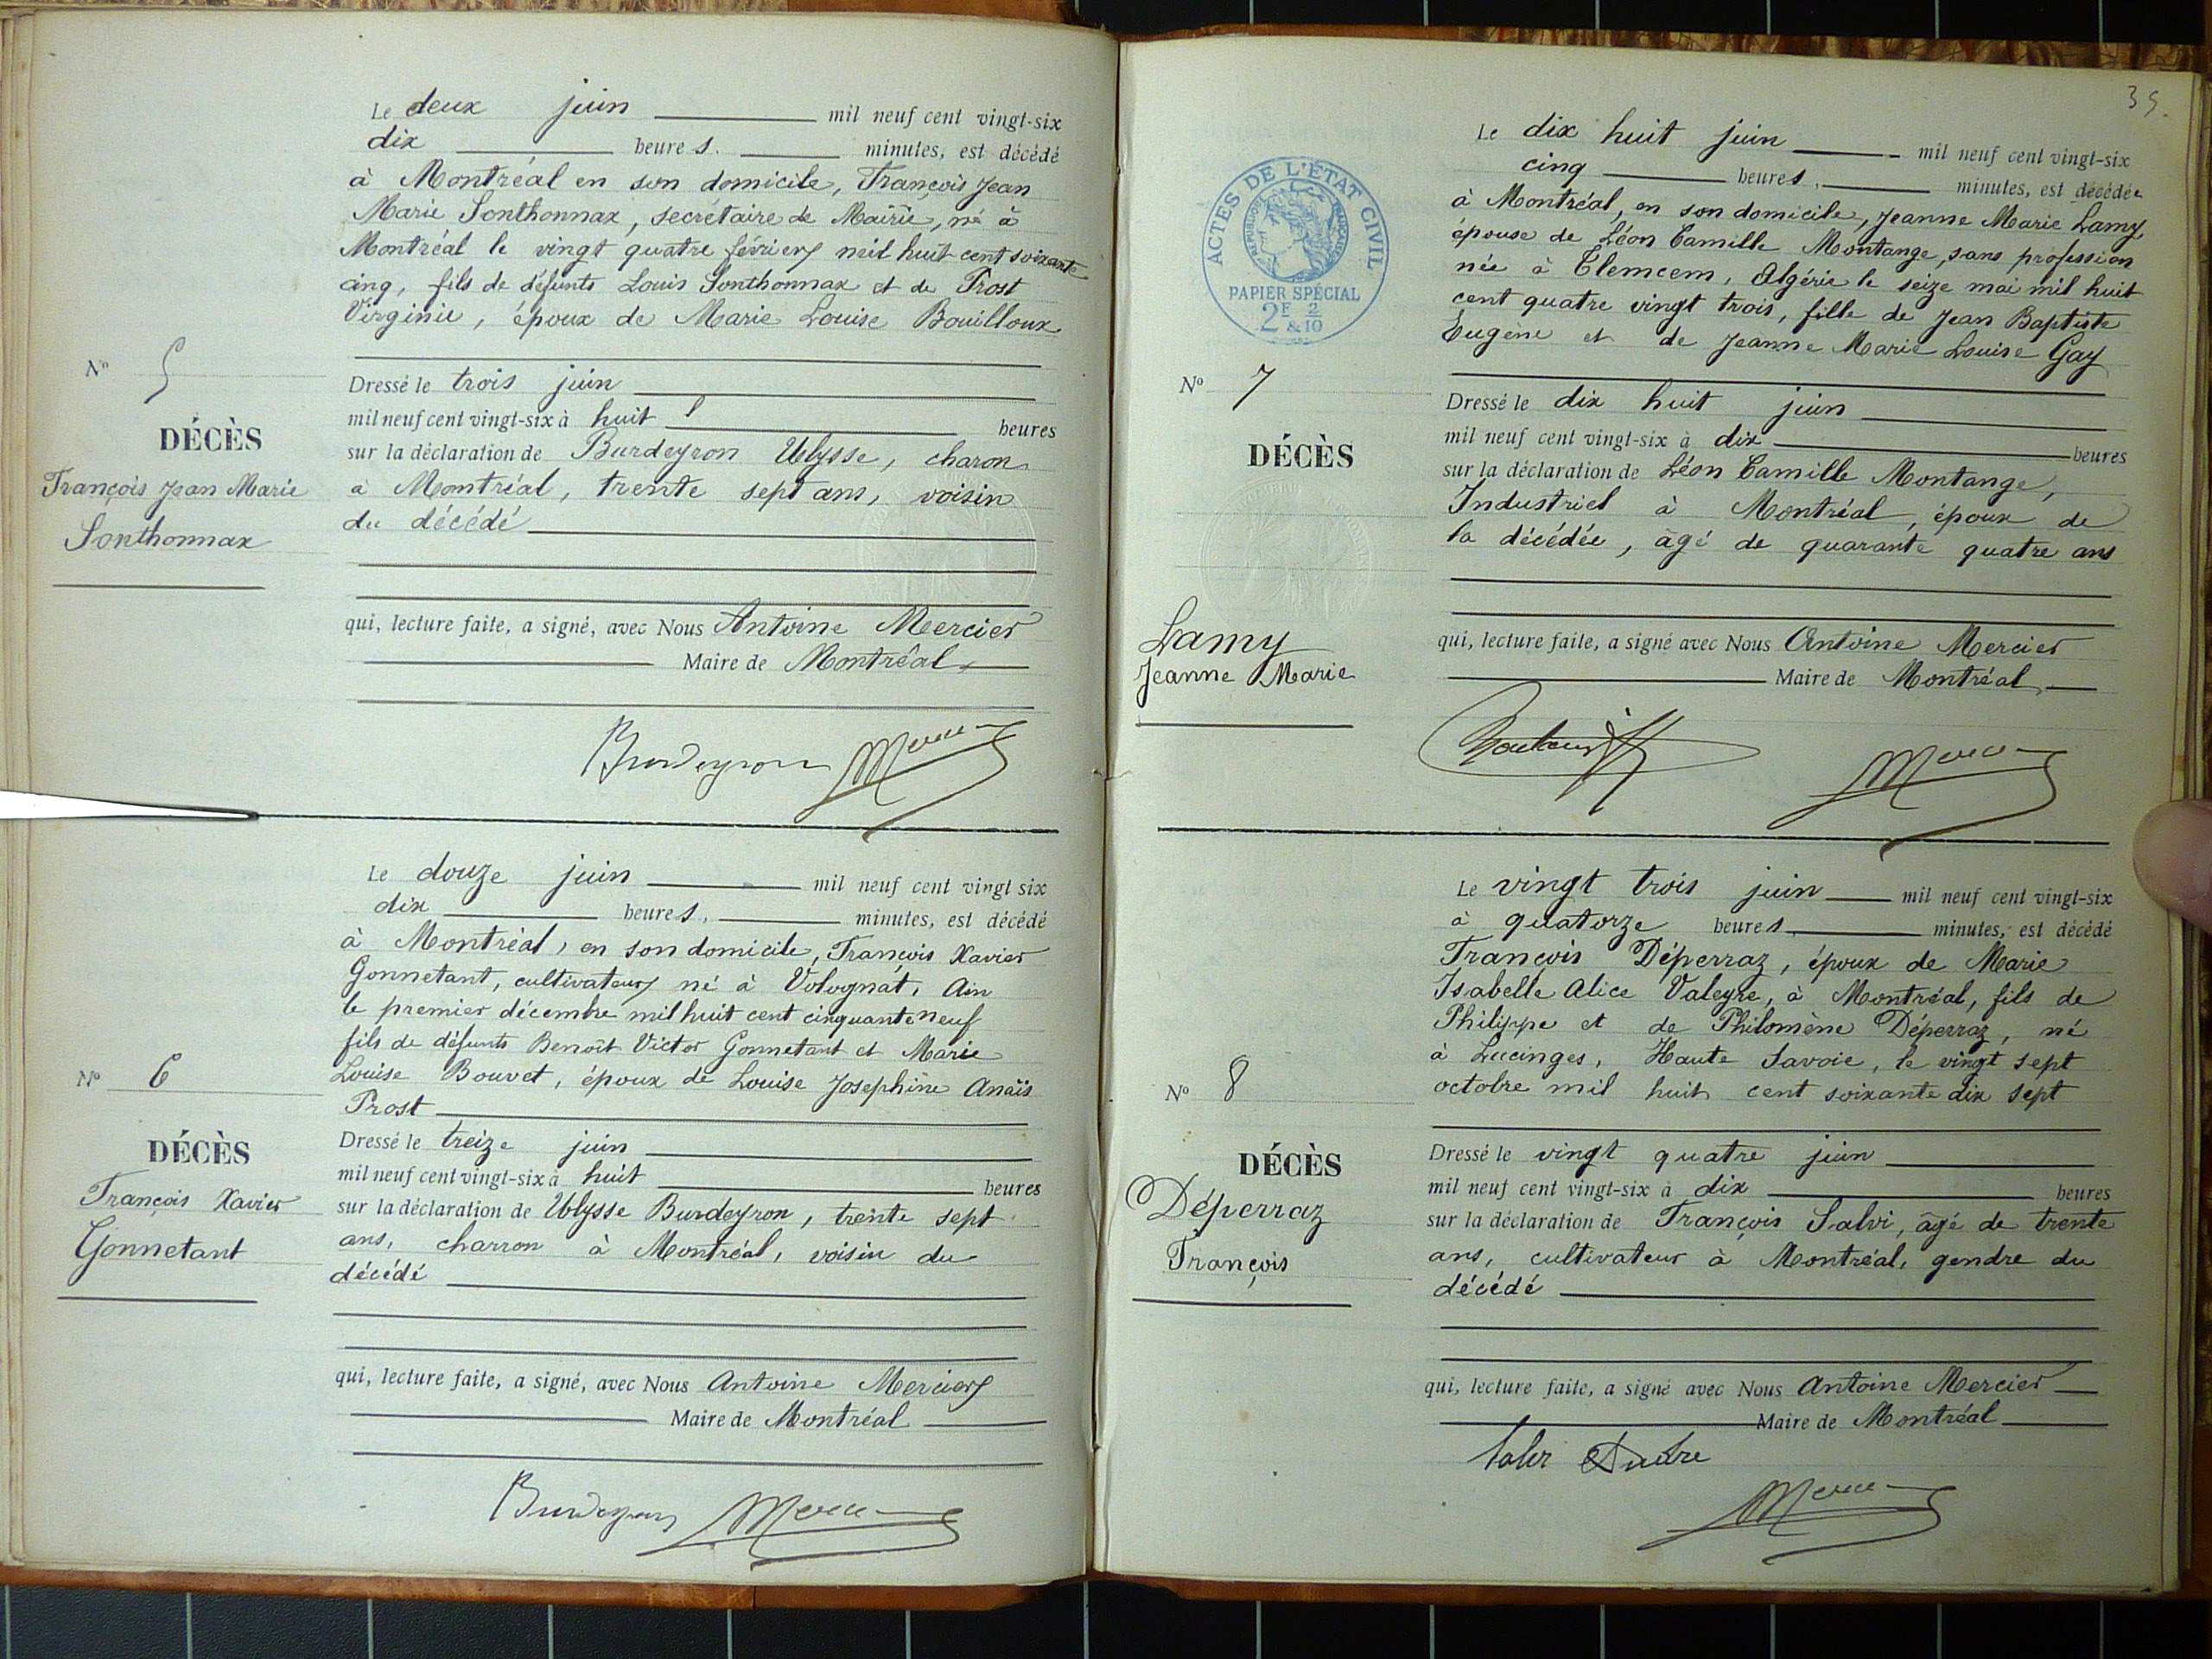 Le deux juin mil neuf cent vingt-six
dix heures. minutes, est décédé
à Montréal en son domicile, François Jean
Marie Sonthonnax, secrétaire de Mairie, né à
Montréal le vingt quatre février mil huit cent soixante
cinq, fils de défunts Louis Sonthonnax et de Prost
Virginie, époux de Marie Louise Bouilloux
Nº 5
DÉCÈS
François Jean Marie
Sonthonnax
Dressé le trois juin
mil neuf cent vingt-six à huit heures
sur la déclaration de Burdeyron Ulysse, charon
à Montréal, trente sept ans, voisin
du décédé
qui, lecture faite, a signé, avec Nous Antoine Mercier
Maire de Montréal
Burdeyron Mercier
Le douze juin mil neuf cent vingt six
dix heures. minutes, est décédé
à Montréal, en son domicile, François Xavier
Gonnetant, cultivateur né à Volognat, Ain
le premier décembre mil huit cent cinquante neuf
fils de défunts Benoît Victor Gonnetant et Marie
Louise Bouvet, époux de Louise Josephine Anaïs
Prost
Nº 6
DÉCÈS
François Xavier
Gonnetant
Dressé le treize juin
mil neuf cent vingt-six à huit heures
sur la déclaration de Ulysse Burdeyron, trente sept
ans, charron à Montréal, voisin du
décédé
qui, lecture faite, a signé, avec Nous Antoine Mercier
Maire de Montréal
Burdeyron Mercier
39.
ACTES DE L'ÉTAT CIVIL
RÉPUBLIQUE FRANÇAISE
PAPIER SPÉCIAL
2F & 2/10
Le dix huit juin mil neuf cent vingt-six
cinq heures. minutes, est décédée
à Montréal, en son domicile, Jeanne Marie Lamy,
épouse de Léon Camille Montange, sans profession
née à Tlemcem, Algérie le seize mai mil huit
cent quatre vingt trois, fille de Jean Baptiste
Eugène et de Jeanne Marie Louise Gay
Nº 7
DÉCÈS
Lamy
Jeanne Marie
Dressé le dix huit juin
mil neuf cent vingt-six à dix heures
sur la déclaration de Léon Camille Montange,
Industriel à Montréal, époux de
la décédée, âgé de quarante quatre ans
qui, lecture faite, a signé avec Nous Antoine Mercier
Maire de Montréal
Mercier
Le vingt trois juin mil neuf cent vingt-six
à quatorze heures. minutes, est décédé
François Déperraz, époux de Marie
Isabelle Alice Valeyre, à Montréal, fils de
Philippe et de Philomène Déperraz, né
à Lucinges, Haute Savoie, le vingt sept
octobre mil huit cent soixante dix sept
Nº 8
DÉCÈS
Déperraz
François
Dressé le vingt quatre juin
mil neuf cent vingt-six à dix heures
sur la déclaration de François Salvi, âgé de trente
ans, cultivateur à Montréal, gendre du
décédé
qui, lecture faite, a signé avec Nous Antoine Mercier
Maire de Montréal
Mercier